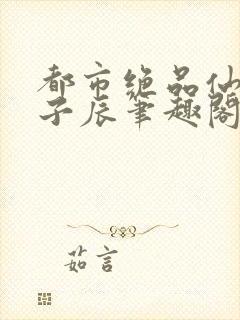 都市绝品仙
子辰筆趣閣
茹言